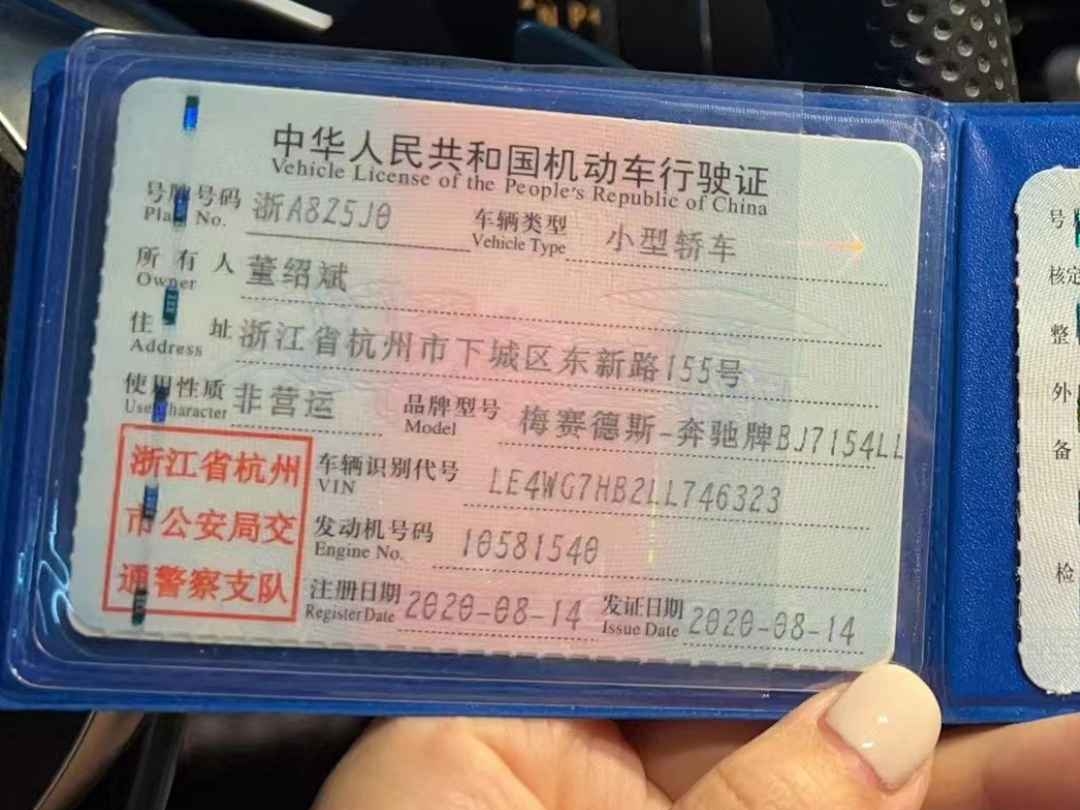 中华人民共和国机动车行驶证
Vehicle License of the People's Republic of China
号牌号码 浙A8Z5J0 车辆类型 小型轿车
Plate No. Vehicle Type
所有人 董绍斌
Owner
住址 浙江省杭州市下城区东新路155号
Address
使用性质 非营运 品牌型号 梅赛德斯-奔驰牌BJ7154LL
Use Character Model
浙江省杭州
市公安局交
通警察支队
车辆识别代号 LE4WG7HB2LL746323
VIN
发动机号码 10581540
Engine No.
注册日期 2020-08-14 发证日期 2020-08-14
Register Date Issue Date
号
核定
整
外
备
检